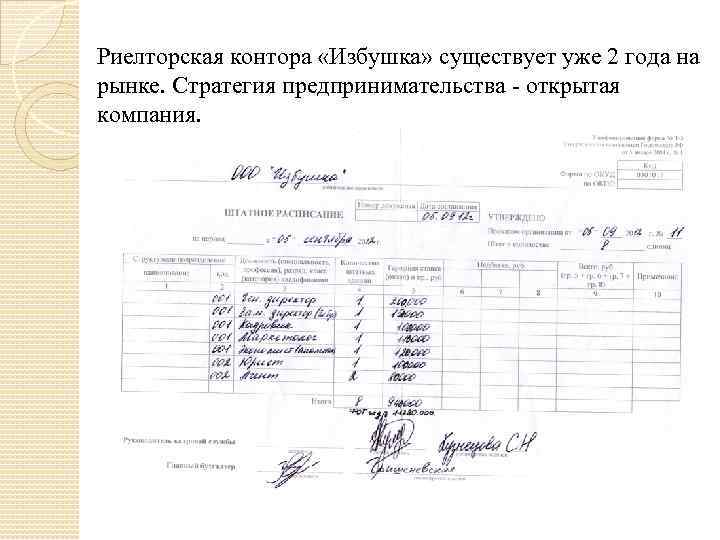 Риелторская контора «Избушка» существует уже 2 года на
рынке. Стратегия предпринимательства - открытая
компания.
Унифицированная форма № Т-3
от 5 января 2004 г. № 1
Код
Форма по ОКУД
по ОКПО
ООО "Избушка"
Номер документа Дата составления
ШТАТНОЕ РАСПИСАНИЕ 05.09.12г
УТВЕРЖДЕНО
Приказом организации от 05 09 2012 г. № 11
на период с 05 сентября 2012г
Штат в количестве 8 единиц
Структурное подразделение
наименование код
Должность (специальность,
профессия), разряд, класс
(категория) квалификации
Количество
штатных
единиц
Тарифная ставка
(оклад) и пр., руб.
Надбавки, руб.
Всего, руб.
(гр. 5 + гр. 6 + гр. 7 +
гр. 8)
Примечание
1 2 3 4 5 6 7 8 9 10
001 Ген. директор 1 200000
001 Зам. директор 1
001 Кадровик 1
001 Маркетолог 1
001 1 120000
002 Юрист 1
002 Агент 2
Итого 8
Руководитель кадровой службы Кузнецова С.Н
Главный бухгалтер